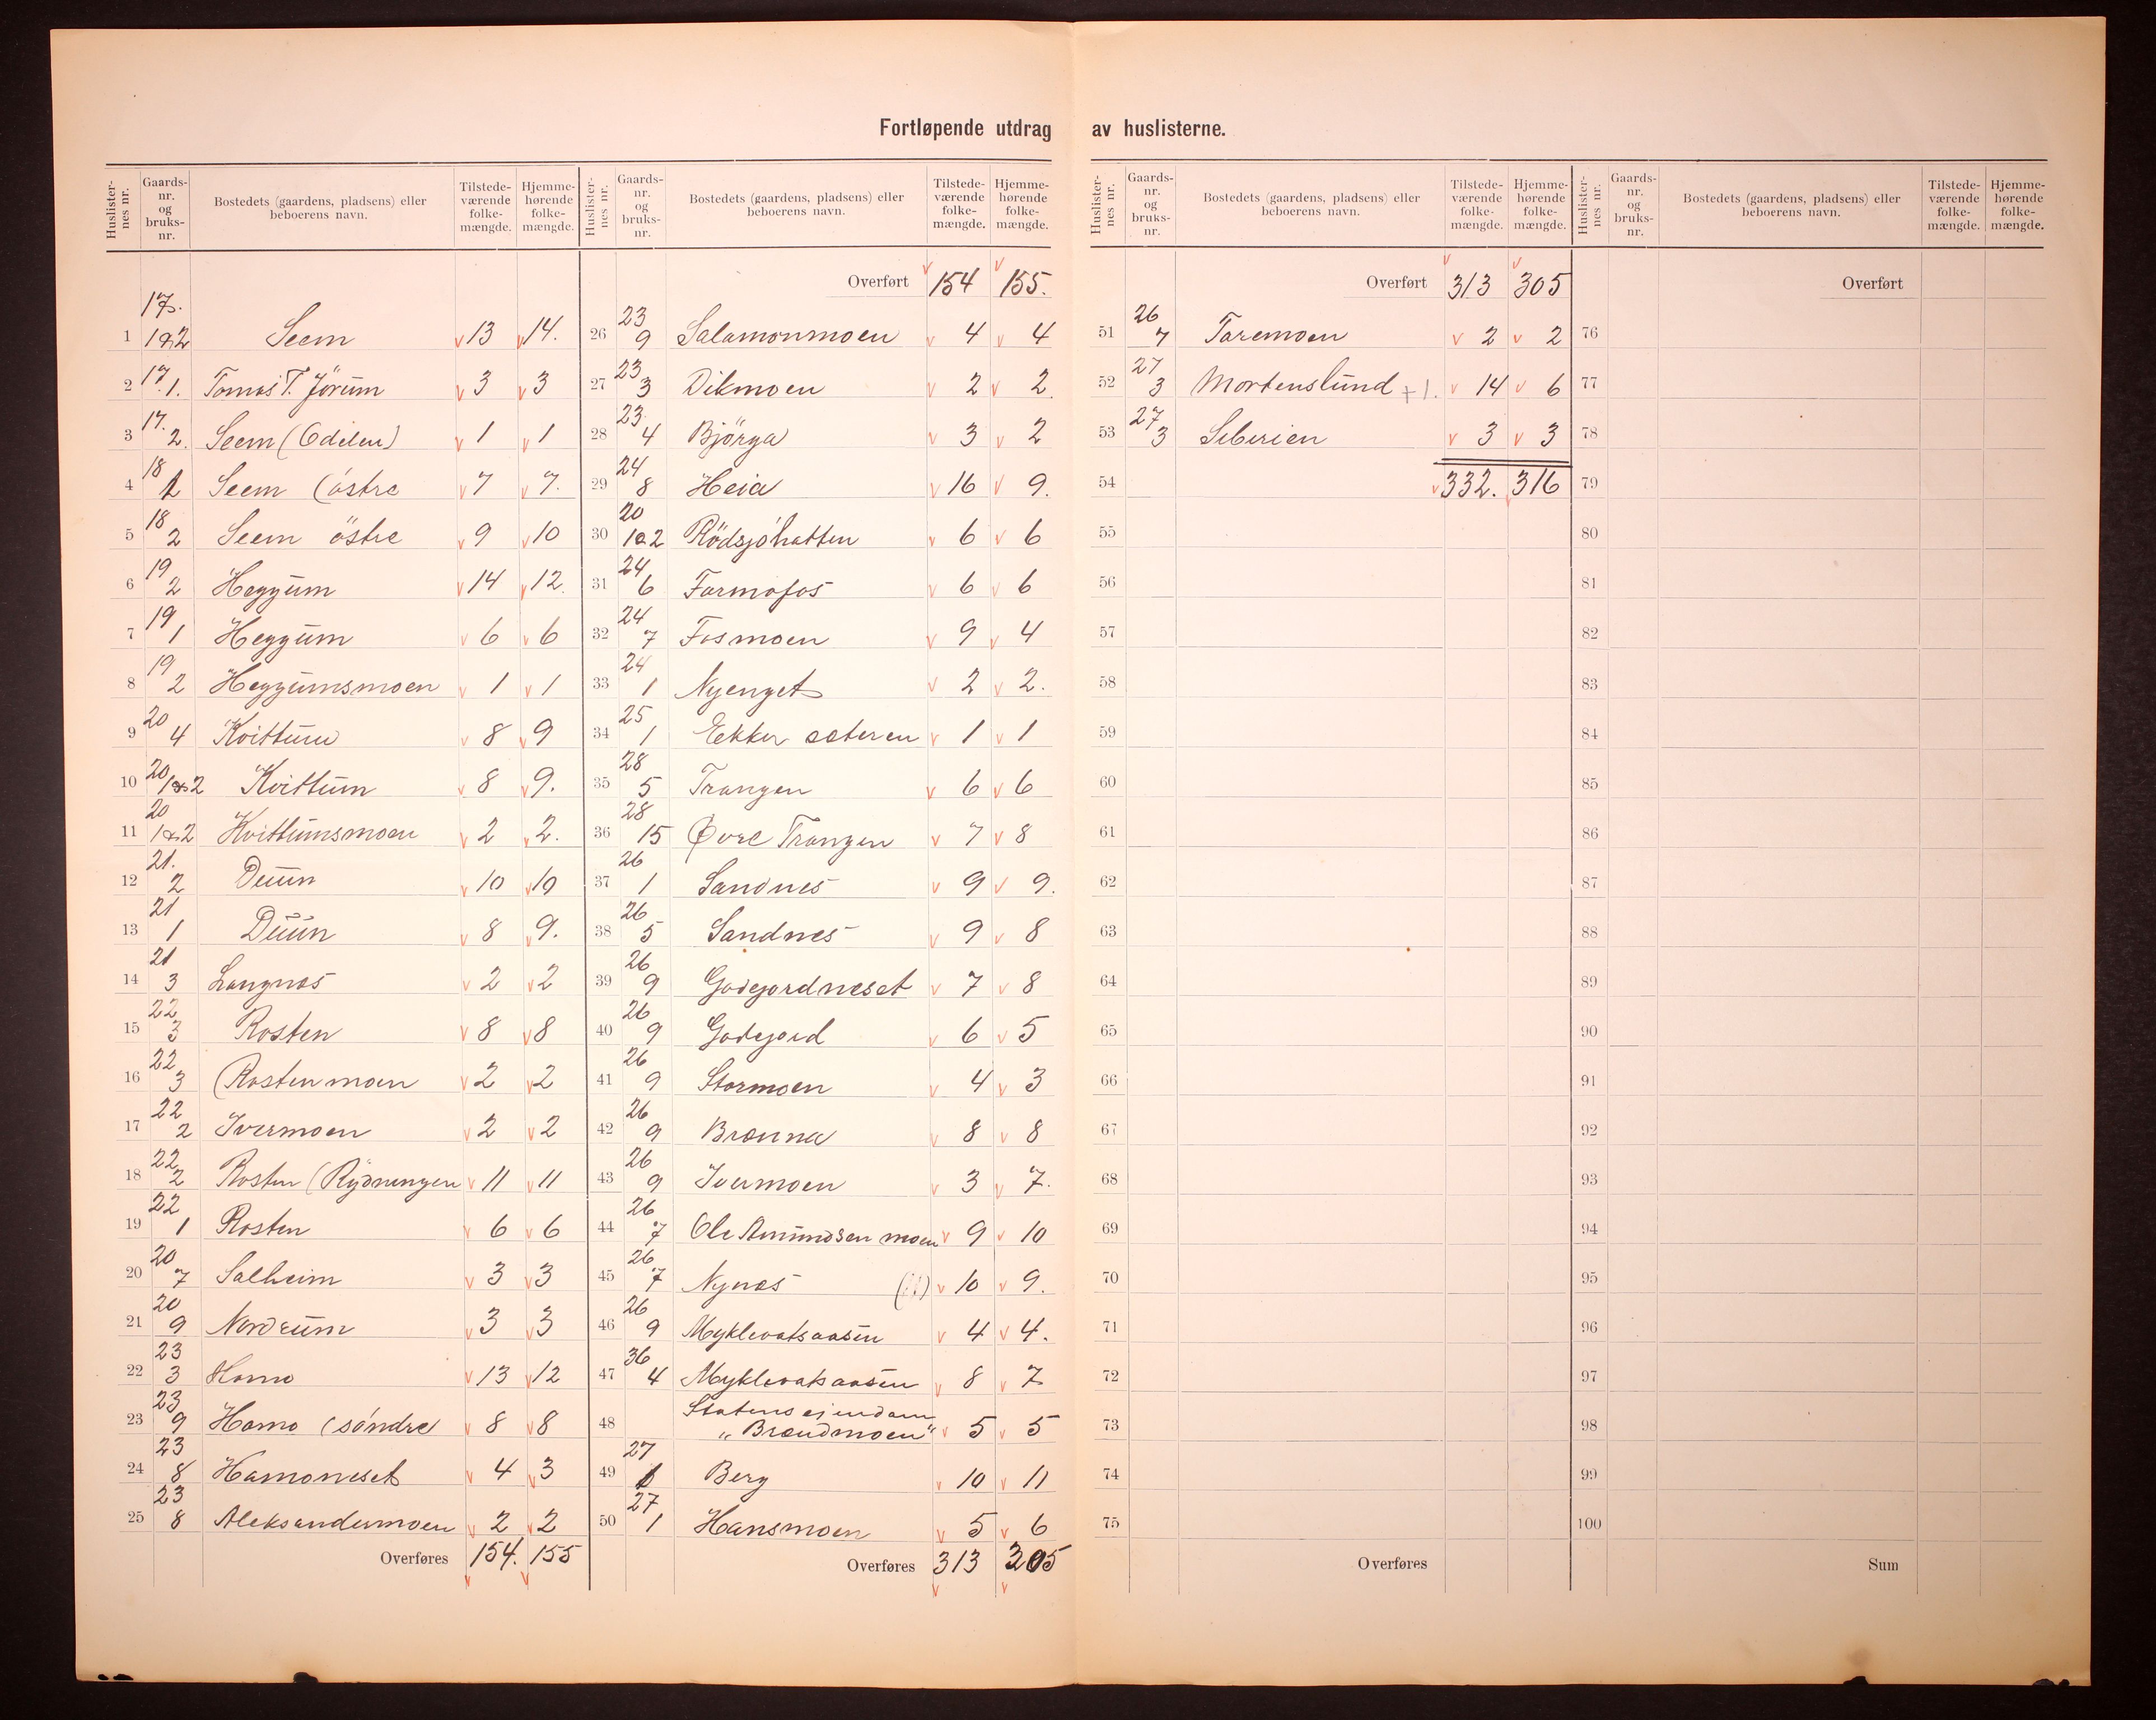 Fortløpende utdrag av huslisterne.
Huslister- nes nr. | Gaards- nr. og bruks- nr. | Bostedets (gaardens, pladsens) eller beboerens navn. | Tilstede- værende folke- mængde. | Hjemme- hørende folke- mængde.
1 | 17. 1&2 | Seem | 13 | 14.
2 | 17. 1. | Tomas T. Jörum | 3 | 3
3 | 17. 2. | Seem (Odelen) | 1 | 1
4 | 18 1 | Seem (östre | 7 | 7.
5 | 18 2 | Seem östre | 9 | 10
6 | 19 2 | Heggum | 14 | 12.
7 | 19 1 | Heggum | 6 | 6
8 | 19 2 | Heggumsmoen | 1 | 1
9 | 20 4 | Kvittum | 8 | 9
10 | 20 1&2 | Kvittum | 8 | 9.
11 | 20 1&2 | Kvittumsmoen | 2 | 2.
12 | 21. 2 | Duun | 10 | 10
13 | 21 1 | Duun | 8 | 9.
14 | 21 3 | Langnes | 2 | 2
15 | 22 3 | Rosten | 8 | 8
16 | 22 3 | (Rostenmoen | 2 | 2
17 | 22 2 | Ivermoen | 2 | 2
18 | 22 2 | Rosten (Rydningen | 11 | 11
19 | 22 1 | Rosten | 6 | 6
20 | 20 7 | Salheim | 3 | 3
21 | 20 9 | Nordrum | 3 | 3
22 | 23 3 | Homo | 13 | 12
23 | 23 9 | Homo (söndre | 8 | 8
24 | 23 8 | Hamoneset | 4 | 3
25 | 23 8 | Aleksandermoen | 2 | 2
Overføres | 154. | 155
Huslister- nes nr. | Gaards- nr. og bruks- nr. | Bostedets (gaardens, pladsens) eller beboerens navn. | Tilstede- værende folke- mængde. | Hjemme- hørende folke- mængde.
Overført | 154 | 155.
26 | 23 9 | Salamonmoen | 4 | 4
27 | 23 3 | Dikmoen | 2 | 2.
28 | 23. 4 | Björga | 3 | 2
29 | 24 8 | Heia | 16 | 9.
30 | 20 1a2 | Rödsjöhatten | 6 | 6
31 | 24 6 | Formofos | 6 | 6
32 | 24 7 | Fosmoen | 9 | 4
33 | 24 1 | Nyenget | 2 | 2.
34 | 25 1 | Ekker sæteren | 1 | 1
35 | 28 5 | Trangen | 6 | 6
36 | 28 15 | Øvre Trangen | 7 | 8
37 | 26 1 | Sandnes | 9 | 9.
38 | 26 5 | Sandnes | 9 | 8
39 | 26 9 | Godejordneset | 7 | 8
40 | 26 9 | Godejord | 6 | 5
41 | 26 9 | Stormoen | 4 | 3
42 | 26 9 | Brænna | 8 | 8
43 | 26 9 | Ivermoen | 3 | 7.
44 | 26 7 | Ole Amundsen moen | 9 | 10
45 | 26 7 | Nynes (11) | 10 | 9.
46 | 26 9 | Myklevatsaasen | 4 | 4.
47 | 36 4 | Myklevatsaasen | 8 | 7
48 | Statens ejendom
„Brændmoen“ | 5 | 5
49 | 27 1 | Berg | 10 | 11
50 | 27 1 | Hansmoen | 5 | 6
Overføres | 313 | 305
Huslister- nes nr. | Gaards- nr. og bruks- nr. | Bostedets (gaardens, pladsens) eller beboerens navn. | Tilstede- værende folke- mængde. | Hjemme- hørende folke- mængde.
Overført | 313 | 305
51 | 26 7 | Taremoen | 2 | 2
52 | 27 3 | Mortenslund +1. | 14 | 6
53 | 27 3 | Siberien | 3 | 3
54 | 332. | 316
55
56
57
58
59
60
61
62
63
64
65
66
67
68
69
70
71
72
73
74
75
Overføres
Huslister- nes nr. | Gaards- nr. og bruks- nr. | Bostedets (gaardens, pladsens) eller beboerens navn. | Tilstede- værende folke- mængde. | Hjemme- hørende folke- mængde.
Overført
76
77
78
79
80
81
82
83
84
85
86
87
88
89
90
91
92
93
94
95
96
97
98
99
100
Sum